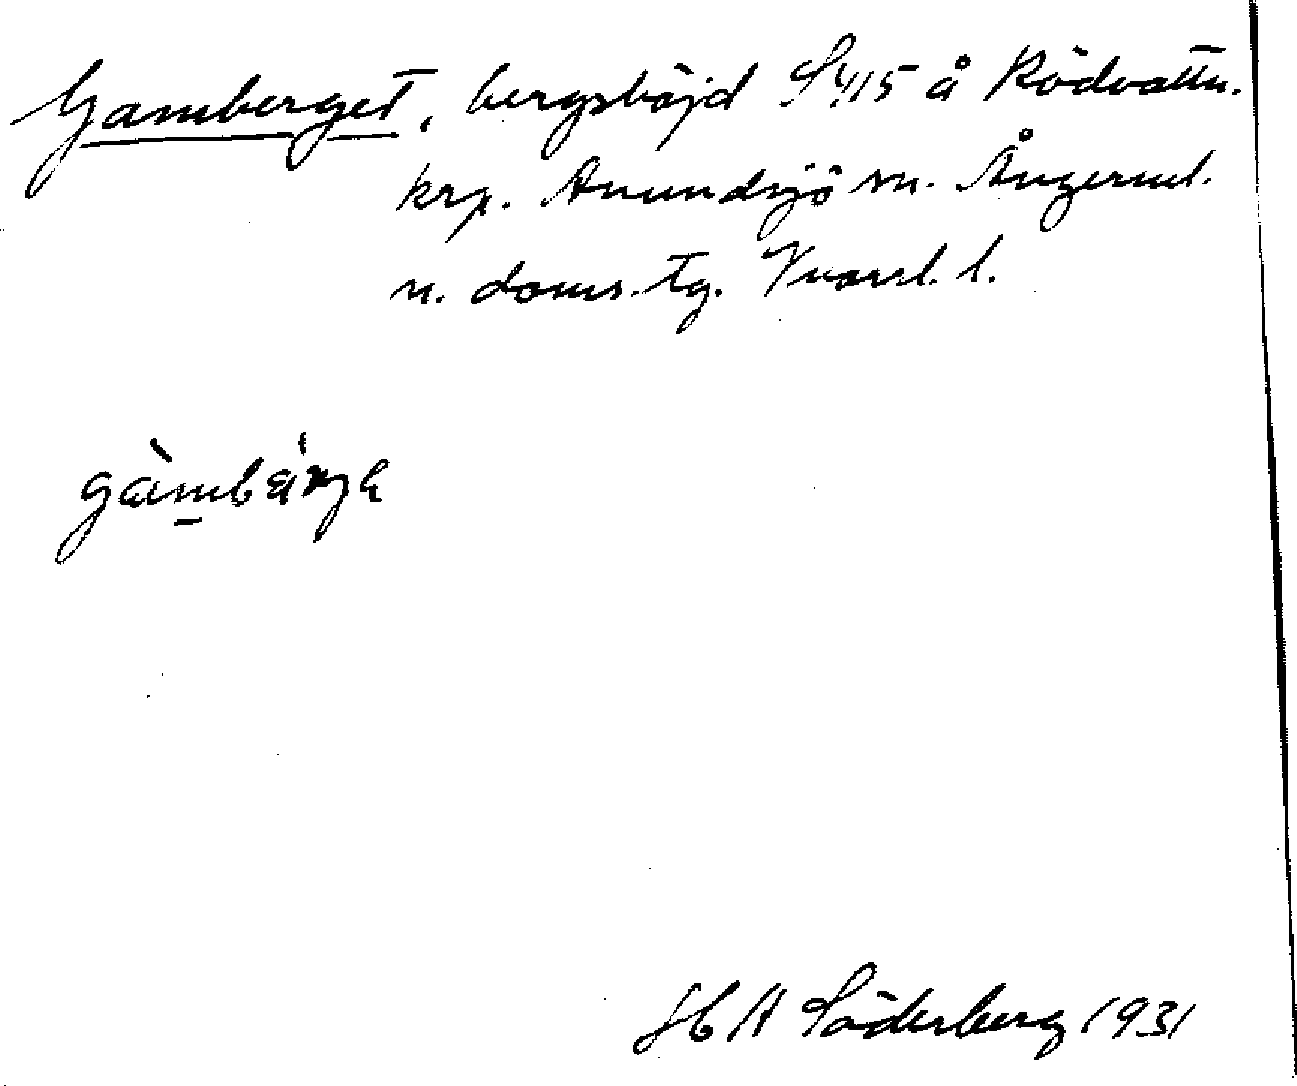 Gamberget, bergshöjd S 415 å Rödvattn.
krp. Anundsjö sn. Ångerml.
n. doms. tg. Vnorrl. l.
gàmbärjε
H A Söderberg 1931